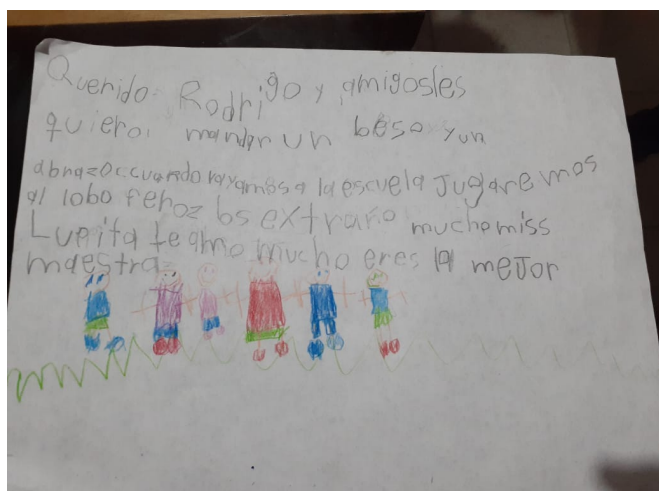 Querido Rodrigo y amigosles
quiero mandar un beso yun
abrazo ccuando vayamos a la escuela Jugaremos
al lobo feroz los extraño mucho miss
Lupita te amo mucho eres la mejor
maestra